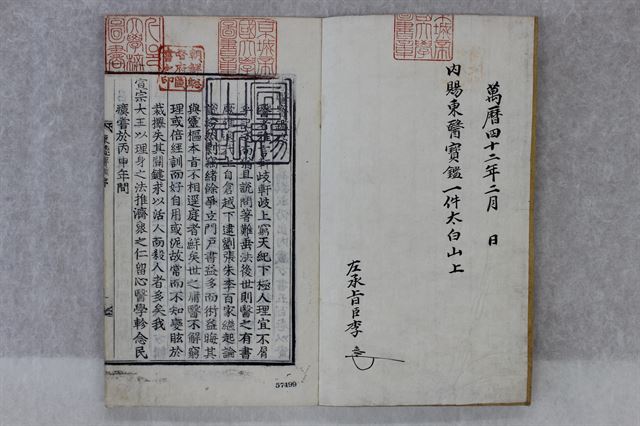 萬曆四十二年二月 日
內賜東醫寶鑑一件太白山上
左承旨臣李
京城帝國大學圖書章
宣賜之記
醫 軒岐軒岐上窮天紀下極人理宜不屑
且說問著難垂法後世則醫之有書
上自倉越下逮劉張朱李百家繼起論
剽竊緖餘爭立門戶書益多而術益晦其
與靈樞本旨不相逕庭者鮮矣世之庸醫不解窮
理或倍經訓而好自用或泥故常而不知變眩於
裁擇失其關鍵求以活人而殺人者多矣我
宣宗大王以理身之法推濟衆之仁留心醫學軫念民
瘼嘗於丙申年間
57499